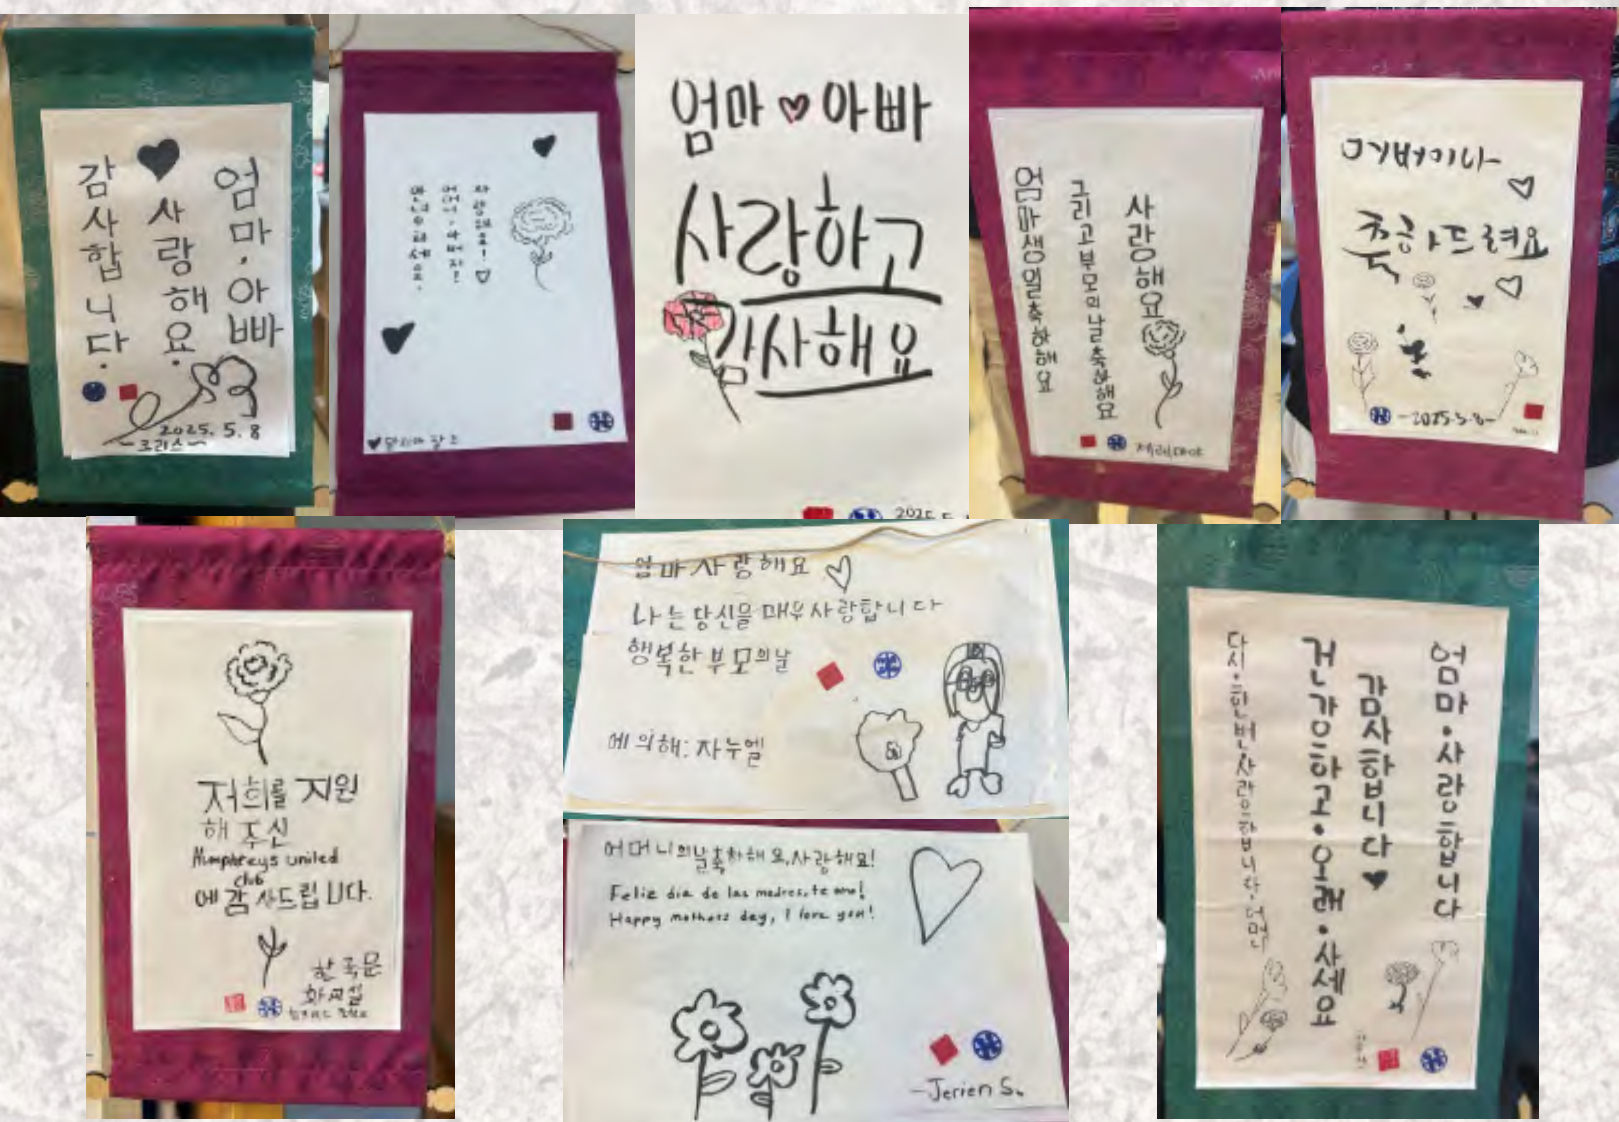 엄마.아빠
사랑해요.
감사합니다.
2025.5.8
-크리스-
사랑해요!
어머니, 아버지!
안녕하세요.
엄마 아빠
사랑하고
감사해요
2025.5.
사랑해요
그리고부모의날축하해요
엄마생일축하해요
축하드려요
-2025.5.8-
저희를 지원
해 주신
Humphreys united
club
에 감사드립니다.
한국문
화교실
엄마 사랑해요
나는 당신을 매우 사랑합니다
행복한 부모의 날
에 의해: 자누엘
어머니의날축하해요,사랑해요!
Feliz dia de las madres, te amo!
Happy mothers day, I love you!
-Jerien S.
엄마.사랑합니다
감사합니다
건강하고.오래.사세요
다시.한번.사랑합니다.어머니